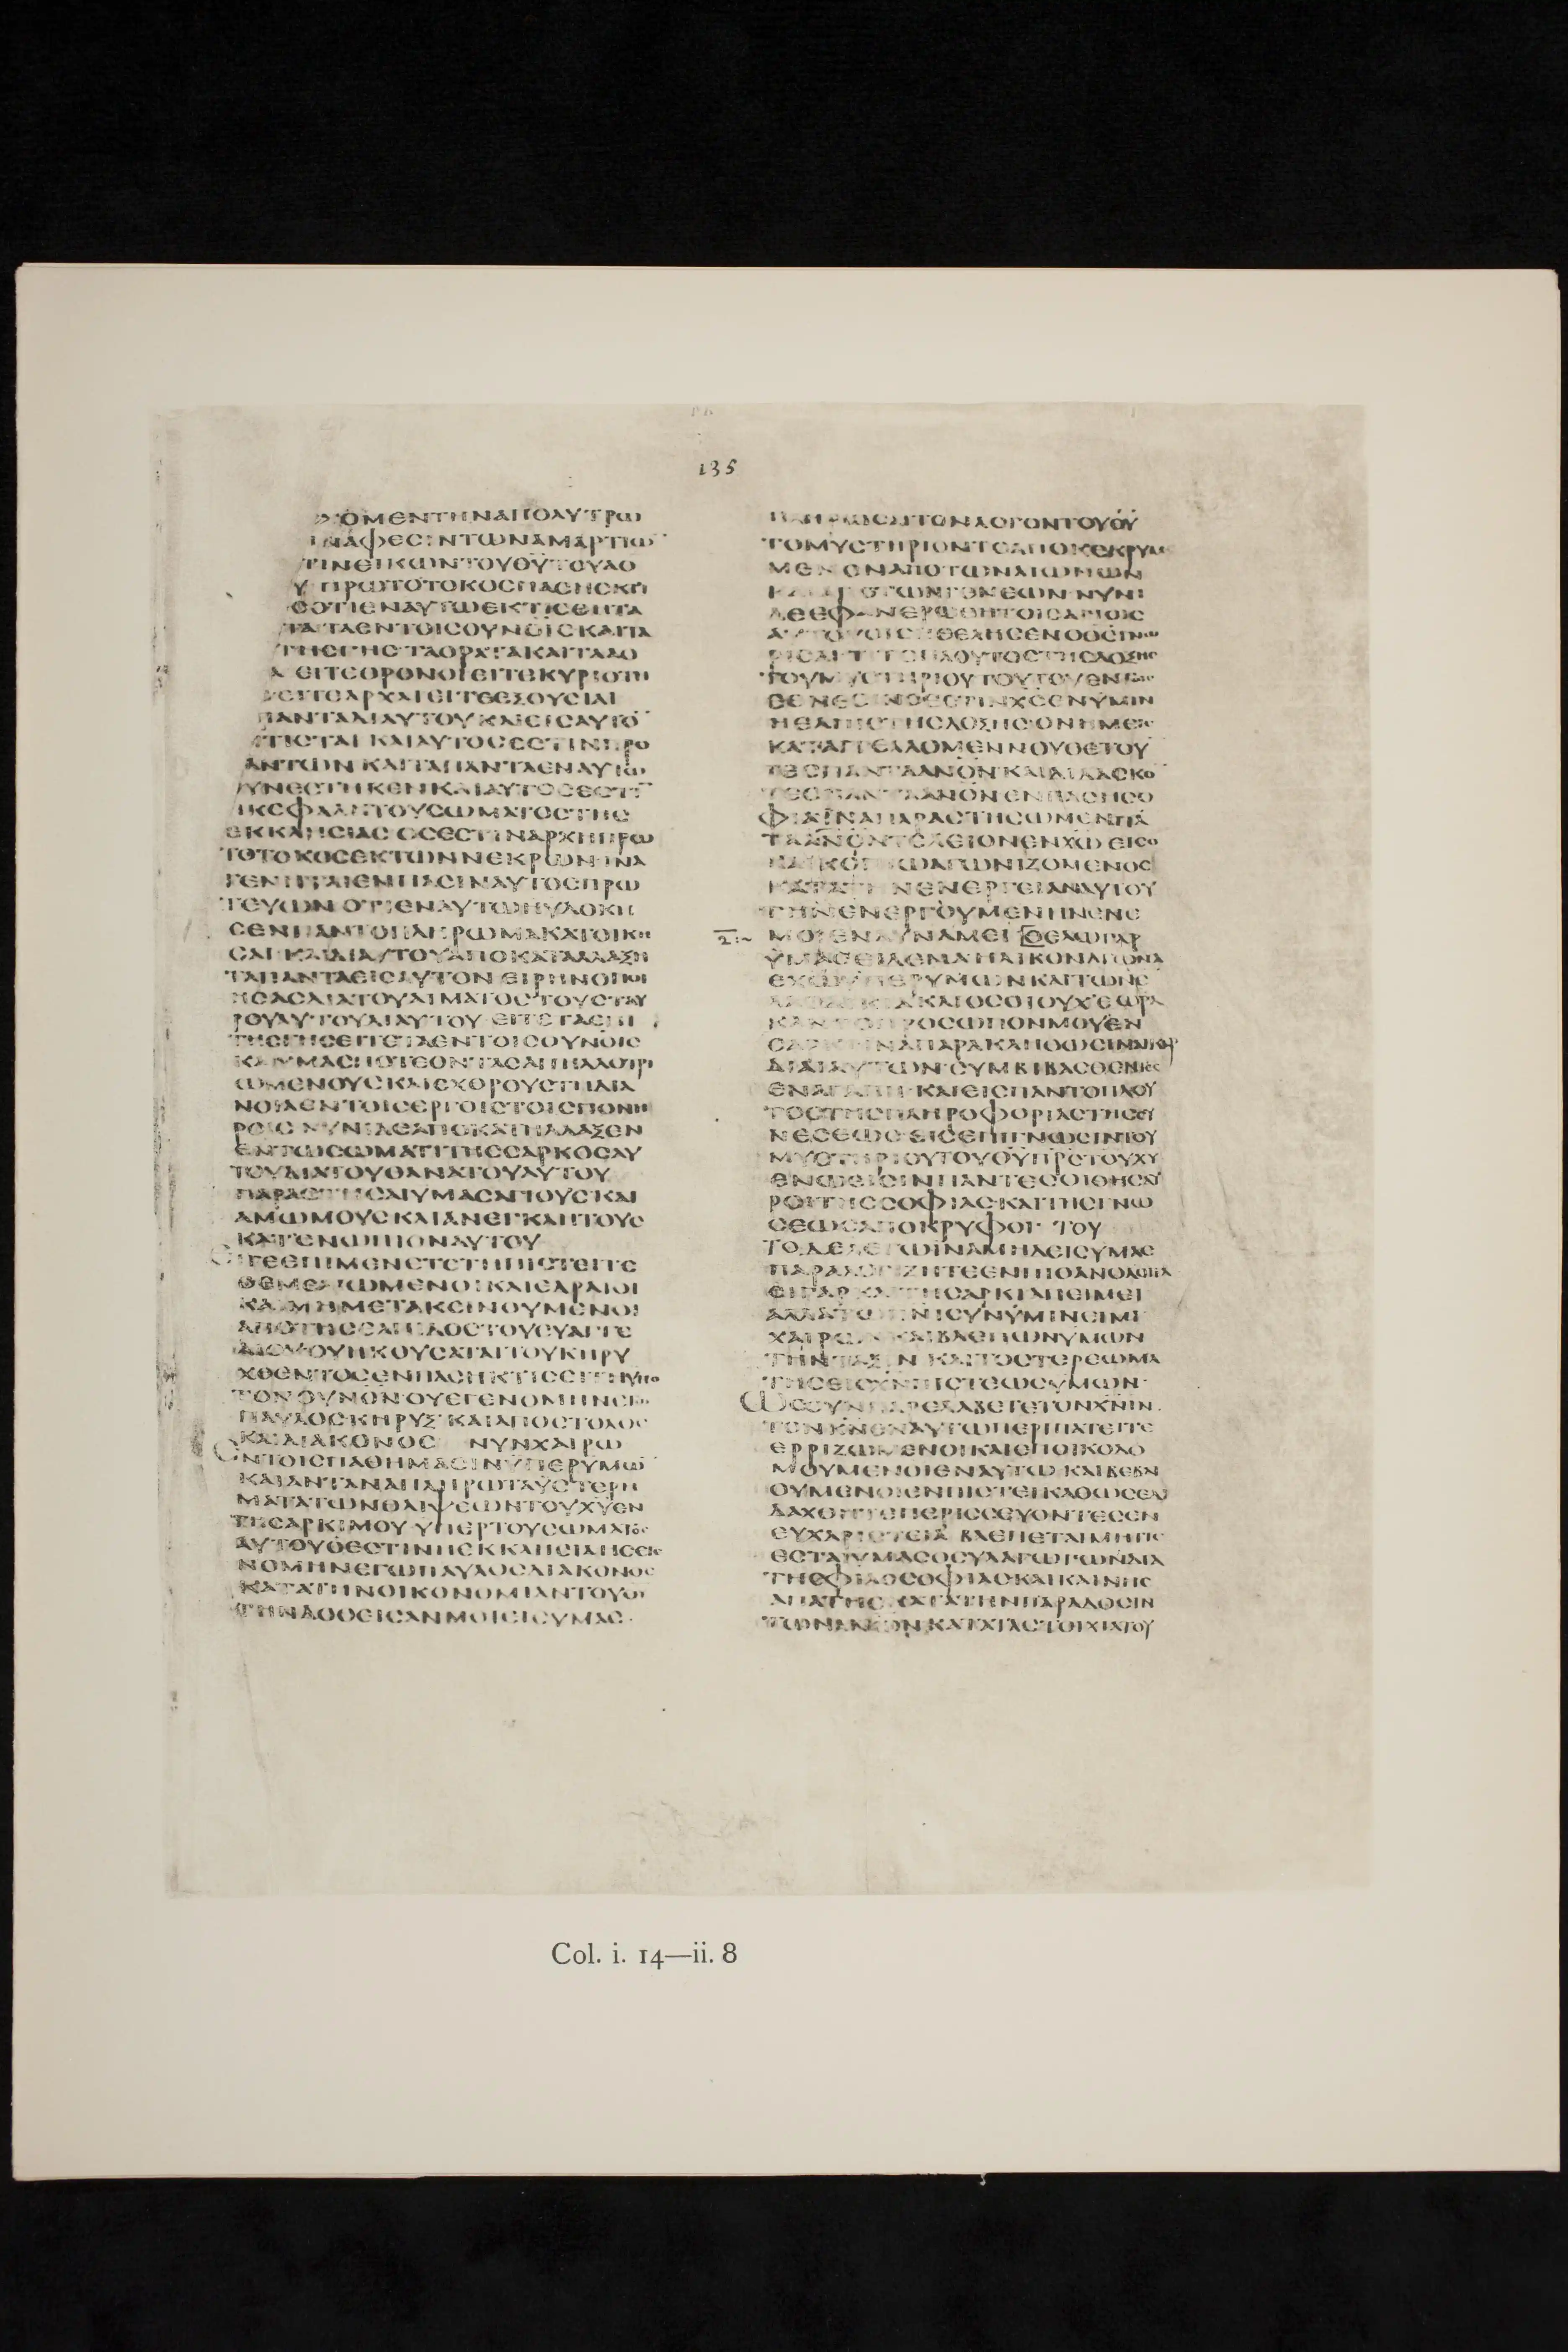 135
ΧΟΜΕΝΤΗΝΑΠΟΛΥΤΡΩ
ΗΝΑΦΕϹΙΝΤΩΝΑΜΑΡΤΙΩ
ΤΙΝΕΙΚΩΝΤΟΥΘΥΤΟΥΑΟ
Υ ΠΡΩΤΟΤΟΚΟϹΠΑϹΗϹΚΤΙ
ΟΤΙΕΝΑΥΤΩΕΚΤΙϹΘΗΤΑ
ΤΑΤΑΕΝΤΟΙϹΟΥΝΟΙϹΚΑΙΤΑ
ΤΗϹΓΗϹΤΑΟΡΑΤΑΚΑΙΤΑΑΟ
Α ΕΙΤΕΘΡΟΝΟΙΕΙΤΕΚΥΡΙΟΤΗ
ΕΙΤΕΑΡΧΑΙΕΙΤΕΕΞΟΥϹΙΑΙ
ΠΑΝΤΑΔΙΑΥΤΟΥΚΑΙΕΙϹΑΥΤΟ
ΤΙϹΤΑΙ ΚΑΙΑΥΤΟϹΕϹΤΙΝΠΡΟ
ΑΝΤΩΝ ΚΑΙΤΑΠΑΝΤΑΕΝΑΥΤΩ
ΥΝΕϹΤΗΚΕΝΚΑΙΑΥΤΟϹΕϹΤΙ
ΗΚΕΦΑΛΗΤΟΥϹΩΜΑΤΟϹΤΗϹ
ΕΚΚΛΗϹΙΑϹ ΟϹΕϹΤΙΝΑΡΧΗΠΡΩ
ΤΟΤΟΚΟϹΕΚΤΩΝΝΕΚΡΩΝΙΝΑ
ΓΕΝΗΤΑΙΕΝΠΑϹΙΝΑΥΤΟϹΠΡΩ
ΤΕΥΩΝ ΟΤΙΕΝΑΥΤΩΗΥΔΟΚΗ
ϹΕΝΠΑΝΤΟΠΛΗΡΩΜΑΚΑΤΟΙΚΗ
ϹΑΙ ΚΑΙΔΙΑΥΤΟΥΑΠΟΚΑΤΑΛΛΑΞΗ
ΤΑΠΑΝΤΑΕΙϹΑΥΤΟΝ ΕΙΡΗΝΟΠΟΙ
ΗϹΑϹΔΙΑΤΟΥΑΙΜΑΤΟϹΤΟΥϹΤΑΥ
ΡΟΥΑΥΤΟΥΔΙΑΥΤΟΥ ΕΙΤΕΤΑΕΠΙ
ΤΗϹΓΗϹΕΙΤΕΤΑΕΝΤΟΙϹΟΥΝΟΙϹ
ΚΑΙΥΜΑϹΠΟΤΕΟΝΤΑϹΑΠΗΛΛΟΤΡΙ
ΩΜΕΝΟΥϹΚΑΙΕΧΘΡΟΥϹΤΗΔΙΑ
ΝΟΙΑΕΝΤΟΙϹΕΡΓΟΙϹΤΟΙϹΠΟΝΗ
ΡΟΙϹ ΝΥΝΙΔΕΑΠΟΚΑΤΗΛΛΑΞΕΝ
ΕΝΤΩϹΩΜΑΤΙΤΗϹϹΑΡΚΟϹΑΥ
ΤΟΥΔΙΑΤΟΥΘΑΝΑΤΟΥΑΥΤΟΥ
ΠΑΡΑϹΤΗϹΑΙΥΜΑϹΑΓΙΟΥϹΚΑΙ
ΑΜΩΜΟΥϹΚΑΙΑΝΕΓΚΛΗΤΟΥϹ
ΚΑΤΕΝΩΠΙΟΝΑΥΤΟΥ
ΕΙΓΕΕΠΙΜΕΝΕΤΕΤΗΠΙϹΤΕΙΤΕ
ΘΕΜΕΛΙΩΜΕΝΟΙΚΑΙΕΔΡΑΙΟΙ
ΚΑΙΜΗΜΕΤΑΚΕΙΝΟΥΜΕΝΟΙ
ΑΠΟΤΗϹΕΛΠΙΔΟϹΤΟΥΕΥΑΓΓΕ
ΛΙΟΥΟΥΗΚΟΥϹΑΤΑΙΤΟΥΚΗΡΥ
ΧΘΕΝΤΟϹΕΝΠΑϹΗΚΤΙϹΕΙΤΗΥΠΟ
ΤΟΝΟΥΝΟΝΟΥΕΓΕΝΟΜΗΝΕΓΩ
ΠΑΥΛΟϹΚΗΡΥΞΚΑΙΑΠΟϹΤΟΛΟϹ
ΚΑΙΔΙΑΚΟΝΟϹ ΝΥΝΧΑΙΡΩ
ΕΝΤΟΙϹΠΑΘΗΜΑϹΙΝΥΠΕΡΥΜΩ
ΚΑΙΑΝΤΑΝΑΠΛΗΡΩΤΑΥϹΤΕΡΗ
ΜΑΤΑΤΩΝΘΛΙΨΕΩΝΤΟΥΧΥΕΝ
ΤΗϹΑΡΚΙΜΟΥ ΥΠΕΡΤΟΥϹΩΜΑΤΟϹ
ΑΥΤΟΥΟΕϹΤΙΝΗΕΚΚΛΗϹΙΑΗϹΕΓΕ
ΝΟΜΗΝΕΓΩΠΑΥΛΟϹΔΙΑΚΟΝΟϹ
ΚΑΤΑΤΗΝΟΙΚΟΝΟΜΙΑΝΤΟΥΘΥ
ΤΗΝΔΟΘΕΙϹΑΝΜΟΙΕΙϹΥΜΑϹ
ΠΛΗΡΩϹΑΙΤΟΝΛΟΓΟΝΤΟΥΘΥ
ΤΟΜΥϹΤΗΡΙΟΝΤΟΑΠΟΚΕΚΡΥΜ
ΜΕΝΟΝΑΠΟΤΩΝΑΙΩΝΩΝ
ΚΑΙΑΠΟΤΩΝΓΕΝΕΩΝ ΝΥΝΙ
ΔΕΕΦΑΝΕΡΩΘΗΤΟΙϹΑΓΙΟΙϹ
ΑΥΤΟΥΟΙϹΗΘΕΛΗϹΕΝΟΘϹΓΝΩ
ΡΙϹΑΙΤΙΤΟΠΛΟΥΤΟϹΤΗϹΔΟΞΗϹ
ΤΟΥΜΥϹΤΗΡΙΟΥΤΟΥΤΟΥΕΝΤΟΙϹ
ΕΘΝΕϹΙΝΟϹΕϹΤΙΝΧϹΕΝΥΜΙΝ
ΗΕΛΠΙϹΤΗϹΔΟΞΗϹΟΝΗΜΕΙϹ
ΚΑΤΑΓΓΕΛΛΟΜΕΝΝΟΥΘΕΤΟΥ
ΤΕϹΠΑΝΤΑΑΝΟΝΚΑΙΔΙΔΑϹΚΟ
ΤΕϹΠΑΝΤΑΑΝΟΝΕΝΠΑϹΗϹΟ
ΦΙΑΙΝΑΠΑΡΑϹΤΗϹΩΜΕΝΠΑ
ΤΑΑΝΟΝΤΕΛΕΙΟΝΕΝΧΩΕΙϹΟ
ΚΑΙΚΟΠΙΩΑΓΩΝΙΖΟΜΕΝΟϹ
ΚΑΤΑΤΗΝΕΝΕΡΓΕΙΑΝΑΥΤΟΥ
ΤΗΝΕΝΕΡΓΟΥΜΕΝΗΝΕΝΕ
ΜΟΙΕΝΔΥΝΑΜΕΙ ΘΕΛΩΓΑΡ
ΥΜΑϹΕΙΔΕΝΑΙΗΛΙΚΟΝΑΓΩΝΑ
ΕΧΩΥΠΕΡΥΜΩΝΚΑΙΤΩΝΕ
ΛΑΟΔΙΚΙΑΚΑΙΟϹΟΙΟΥΧΕΩΡΑ
ΚΑΝΤΟΠΡΟϹΩΠΟΝΜΟΥΕΝ
ϹΑΡΚΙΙΝΑΠΑΡΑΚΛΗΘΩϹΙΝΑΙΚΑΡ
ΔΙΑΙΑΥΤΩΝϹΥΜΒΙΒΑϹΘΕΝΤΕϹ
ΕΝΑΓΑΠΗΚΑΙΕΙϹΠΑΝΤΟΠΛΟΥ
ΤΟϹΤΗϹΠΛΗΡΟΦΟΡΙΑϹΤΗϹϹΥ
ΝΕϹΕΩϹ ΕΙϹΕΠΙΓΝΩϹΙΝΤΟΥ
ΜΥϹΤΗΡΙΟΥΤΟΥΘΥΠΡϹΤΟΥΧΥ
ΕΝΩΕΙϹΙΝΠΑΝΤΕϹΟΙΘΗϹΑΥ
ΡΟΙΤΗϹϹΟΦΙΑϹΚΑΙΤΗϹΓΝΩ
ϹΕΩϹΑΠΟΚΡΥΦΟΙ ΤΟΥ
ΤΟΔΕΛΕΓΩΙΝΑΜΗΔΕΙϹΥΜΑϹ
ΠΑΡΑΛΟΓΙΖΗΤΕΕΝΠΙΘΑΝΟΛΟΓΙΑ
ΕΙΓΑΡΚΑΙΤΗϹΑΡΚΙΑΠΕΙΜΕΙ
ΑΛΛΑΤΩΠΝΙϹΥΝΥΜΙΝΕΙΜΙ
ΧΑΙΡΩΝΚΑΙΒΛΕΠΩΝΥΜΩΝ
ΤΗΝΤΑΞΙΝ ΚΑΙΤΟϹΤΕΡΕΩΜΑ
ΤΗϹΕΙϹΧΝΠΙϹΤΕΩϹΥΜΩΝ
ΩϹΟΥΝΠΑΡΕΛΑΒΕΤΕΤΟΝΧΝΙΝ
ΤΟΝΚΝΕΝΑΥΤΩΠΕΡΙΠΑΤΕΙΤΕ
ΕΡΡΙΖΩΜΕΝΟΙΚΑΙΕΠΟΙΚΟΔΟ
ΜΟΥΜΕΝΟΙΕΝΑΥΤΩ ΚΑΙΒΕΒΑΙ
ΟΥΜΕΝΟΙΕΝΠΙϹΤΕΙΚΑΘΩϹΕΔΙ
ΔΑΧΘΗΤΕΠΕΡΙϹϹΕΥΟΝΤΕϹΕΝ
ΕΥΧΑΡΙϹΤΕΙΑ ΒΛΕΠΕΤΑΙΜΗΤΙϹ
ΕϹΤΑΙΥΜΑϹΟϹΥΛΑΓΩΓΩΝΔΙΑ
ΤΗϹΦΙΛΟϹΟΦΙΑϹΚΑΙΚΑΙΝΗϹ
ΑΠΑΤΗϹ ΚΑΤΑΤΗΝΠΑΡΑΔΟϹΙΝ
ΤΩΝΑΝΩΝΚΑΤΑΤΑϹΤΟΙΧΙΑΤΟΥ
Col. i. 14—ii. 8